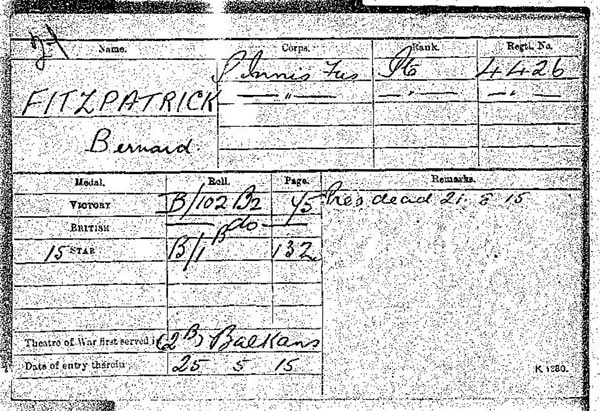 Name. Corps. Rank. Regtl. No.
Innis Fus Pte 4426
FITZPATRICK — " — — " — — " —
Bernard.
Medal. Roll. Page. Remarks.
VICTORY B/102 B2 45 Pres dead 21. 8 15
BRITISH — do —
15 STAR B/1 B 132
Theatre of War first served in (2B) Balkans
Date of entry therein 25 5 15
K 1380.